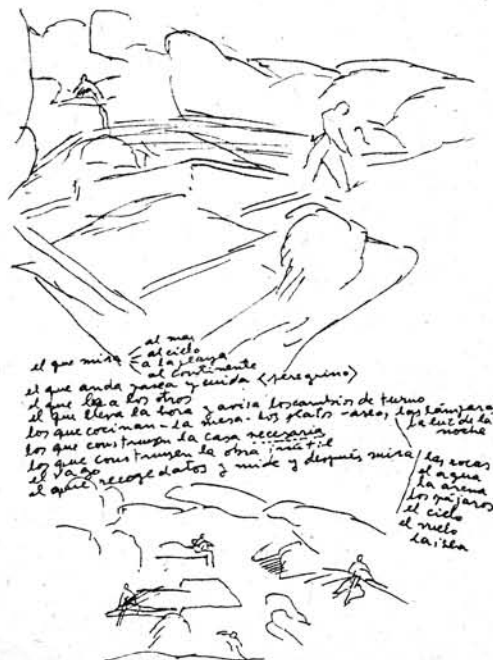 el que mira
al mar
al cielo
a la playa
al continente
el que anda pasea y cuida (peregrino)
el que lee a los otros
el que lleva la hora y avisa los cambios de turno
los que cocinan - la mesa - los platos - aseo, las lámparas
la luz de la
noche
los que construyen la casa necesaria
los que construyen la obra inútil
el vago
el que recoge datos y mide y después mira
las rocas
el agua
la arena
los pájaros
el cielo
el suelo
la isla